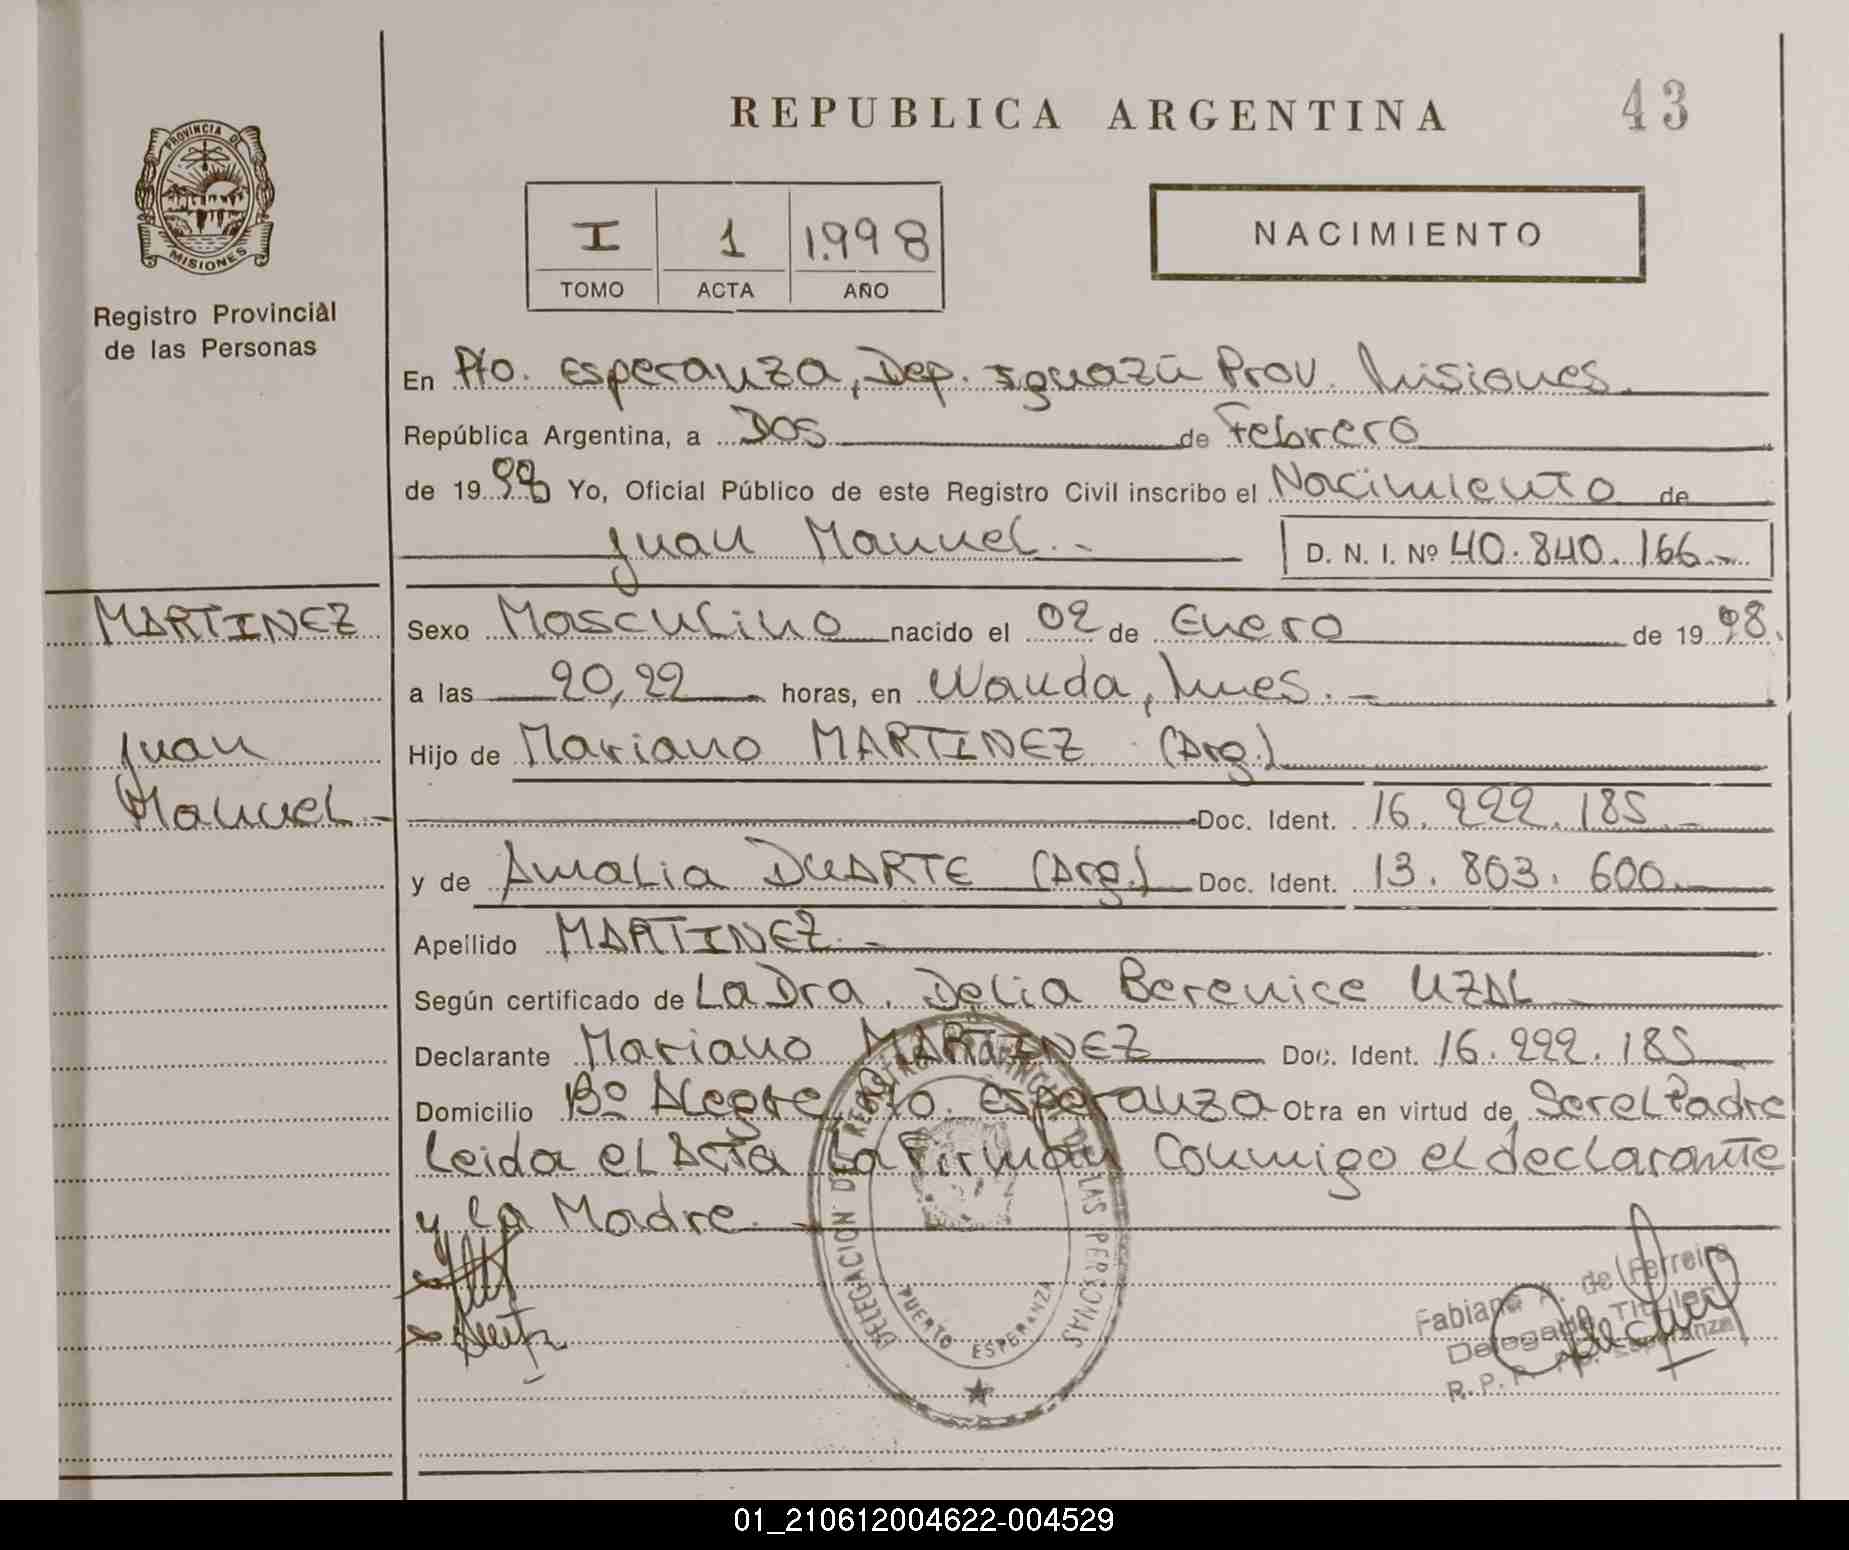 REPUBLICA ARGENTINA
43
PROVINCIA DE
MISIONES
Registro Provincial
de las Personas
I 1 1.998
TOMO ACTA AÑO
NACIMIENTO
En Pto. Esperanza, Dep. Iguazú Prov. Misiones.
República Argentina, a Dos de Febrero
de 1998 Yo, Oficial Público de este Registro Civil inscribo el Nacimiento de
Juan Manuel.-
D. N. I. Nº 40.840.166.-
MARTINEZ
Juan
Manuel.-
Sexo Masculino nacido el 02 de Enero de 1998.
a las 20,22 horas, en Wanda, Mnes.-
Hijo de Mariano MARTINEZ (Arg.)
Doc. Ident. 16.222.185.-
y de Amalia DUARTE (Arg.) Doc. Ident. 13.803.600.-
Apellido MARTINEZ.-
Según certificado de La Dra. Delia Berenice UZAL
Declarante Mariano MARTINEZ Doc. Ident. 16.222.185
Domicilio Bº Alegre Pto. Esperanza Otra en virtud de Ser el Padre
Leida el Acta La Firman Conmigo el declarante
y la Madre.-
DELEGACION DEL REGISTRO PROVINCIAL DE LAS PERSONAS
PUERTO ESPERANZA
Fabiana A. de Ferreira
Delegada Titular
R.P.P. Pto. Esperanza
01_210612004622-004529